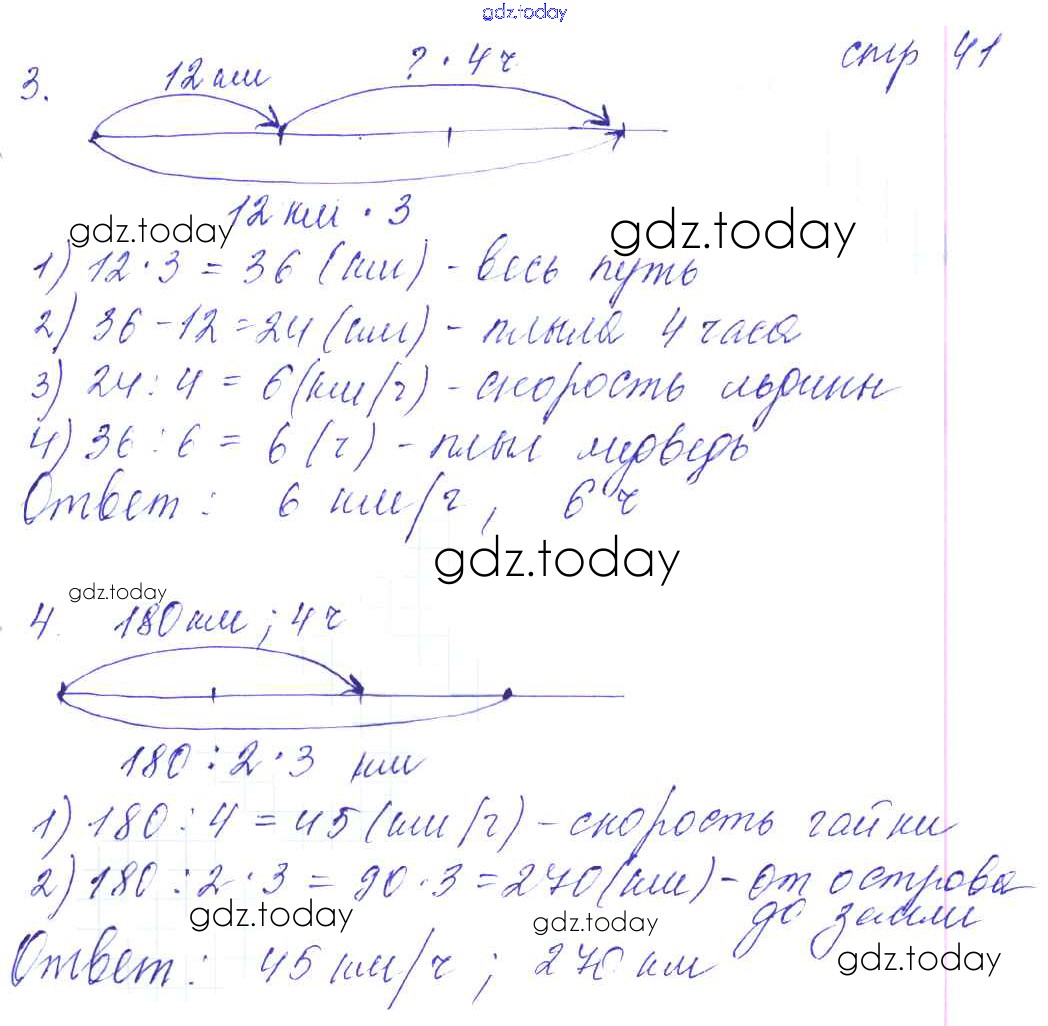 gdz.today
стр 41
3. 12 км ? · 4 ч
12 км · 3
gdz.today gdz.today
1) 12 · 3 = 36 (км) - весь путь
2) 36 - 12 = 24 (км) - плыла 4 часа
3) 24 : 4 = 6 (км/ч) - скорость льдины
4) 36 : 6 = 6 (ч) - плыл медведь
Ответ: 6 км/ч, 6 ч
gdz.today
gdz.today
4. 180 км ; 4 ч
180 : 2 · 3 км
1) 180 : 4 = 45 (км/ч) - скорость чайки
2) 180 : 2 · 3 = 90 · 3 = 270 (км) - от острова
до земли
gdz.today gdz.today
Ответ: 45 км/ч ; 270 км
gdz.today